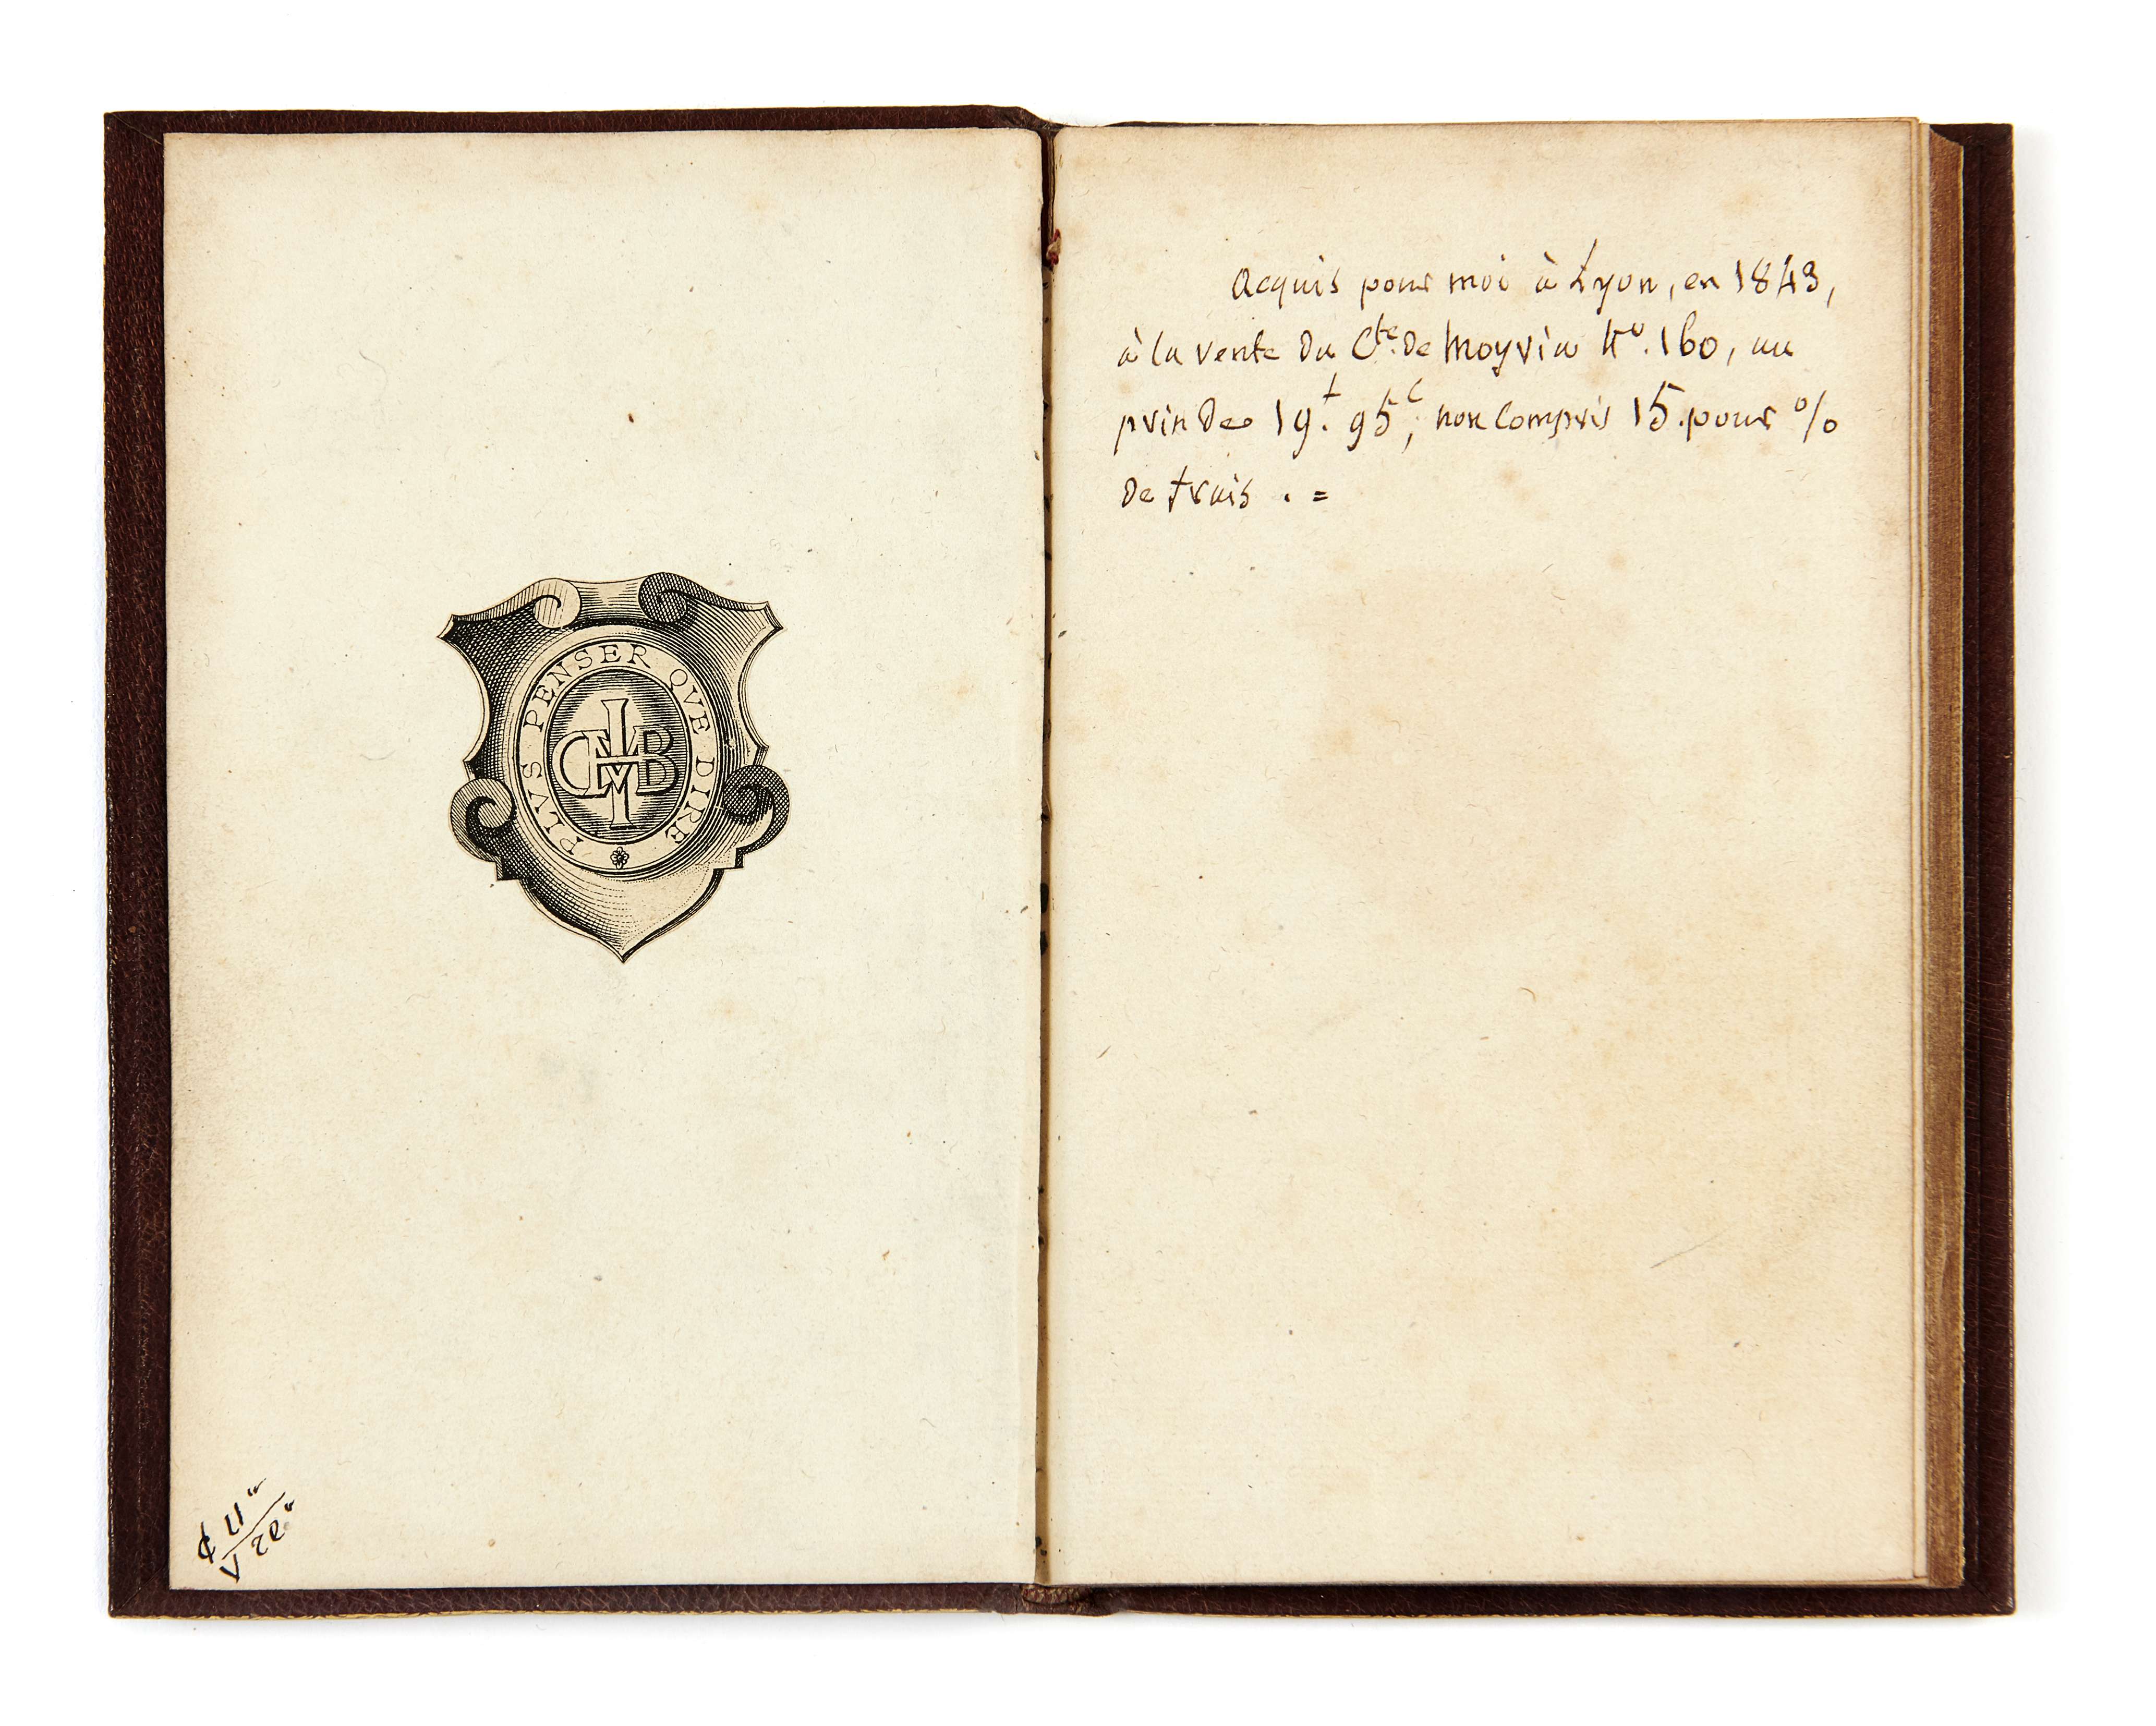 PLVS PENSER QVE DIRE
Acquis pour moi à Lyon, en 1843,
à la vente du Cte. de Moyria No. 160, au
prix de 19f. 95c, non compris 15. pour %
de frais . =